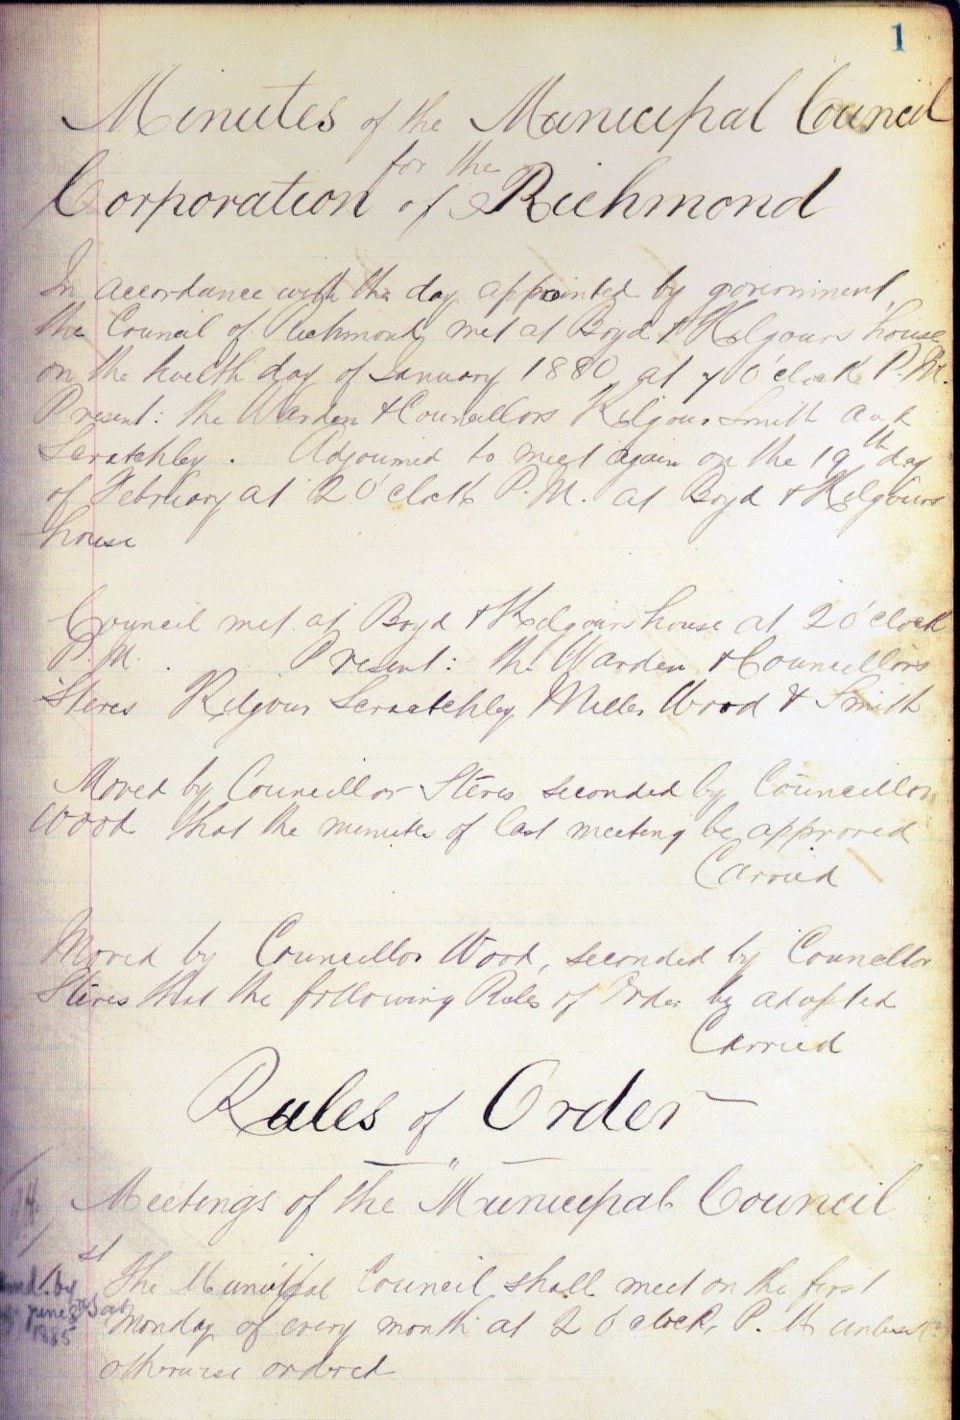 1
Minutes of the Municipal Council
for the
Corporation of Richmond
In accordance with the day appointed by government,
the Council of Richmond met at Boyd & Kilgours house
on the twelth day of January 1880 at 7 O'clock P.M.
Present: the Warden & Councillors Kilgour Smith and
Scratchley. Adjourned to meet again on the 19th day
of February at 2 O'clock P.M. at Boyd & Kilgours
house
Council met at Boyd & Kilgours house at 2 O'clock
P.M. Present: the Warden & Councillors
Steves Kilgour Scratchley Miller Wood & Smith
Moved by Councillor Steves seconded by Councillor
Wood that the minutes of last meeting be approved
Carried
Moved by Councillor Wood, seconded by Councillor
Steves that the following Rules of Order be adopted
Carried
Rules of Order
Meetings of the Municipal Council
1st The Municipal Council shall meet on the first
Monday of every month at 2 O'clock, P.M. unless
otherwise ordered
by
June 8th
1885